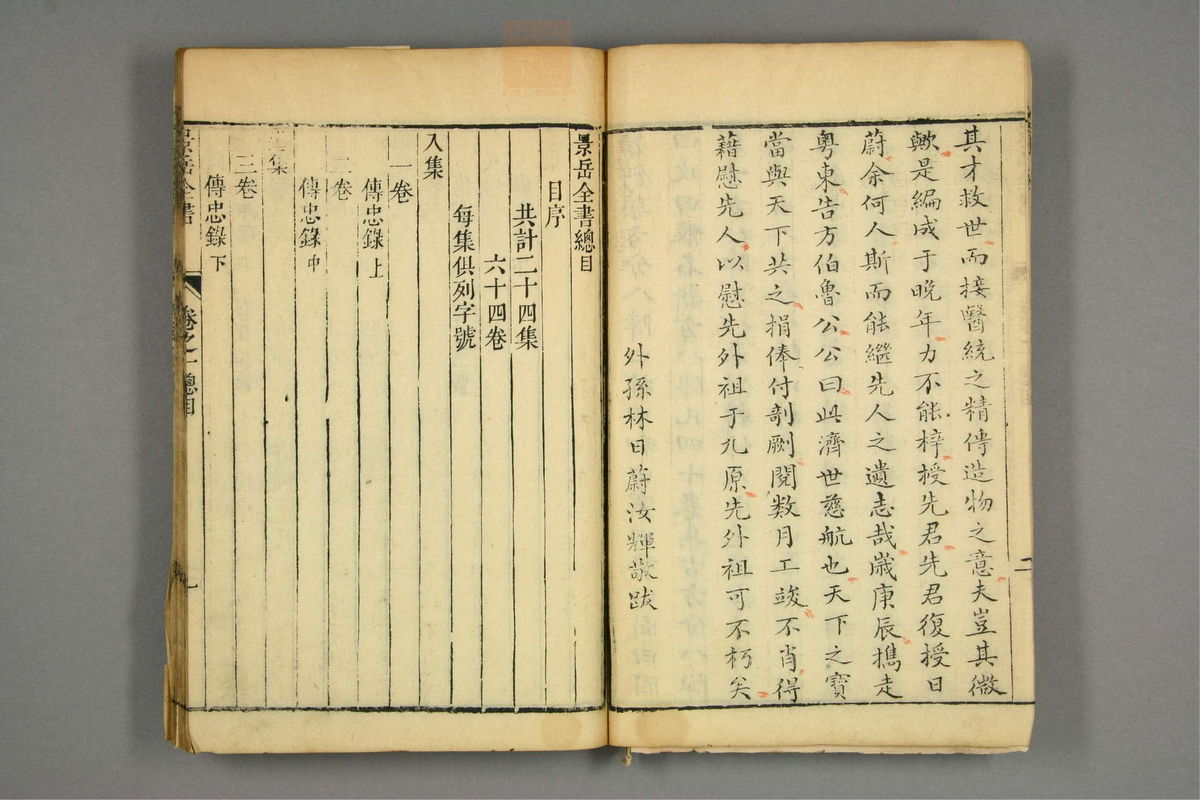 其才救世而接醫統之精傳造物之意夫豈其微
歟是編成于晚年力不能梓授先君先君復授日
蔚余何人斯而能繼先人之遺志哉歲庚辰攜走
粵東告方伯魯公公曰此濟世慈航也天下之寶
當與天下共之捐俸付剞劂閱数月工竣不肖得
藉慰先人以慰先外祖于九原先外祖可不朽矣
外孫林日蔚汝輝敬跋
二
景岳全書總目
目序
共計二十四集
六十四卷
每集俱列字號
入集
一卷
傳忠錄上
二卷
傳忠錄中
集
三卷
傳忠錄下
景岳全書
卷之一總目